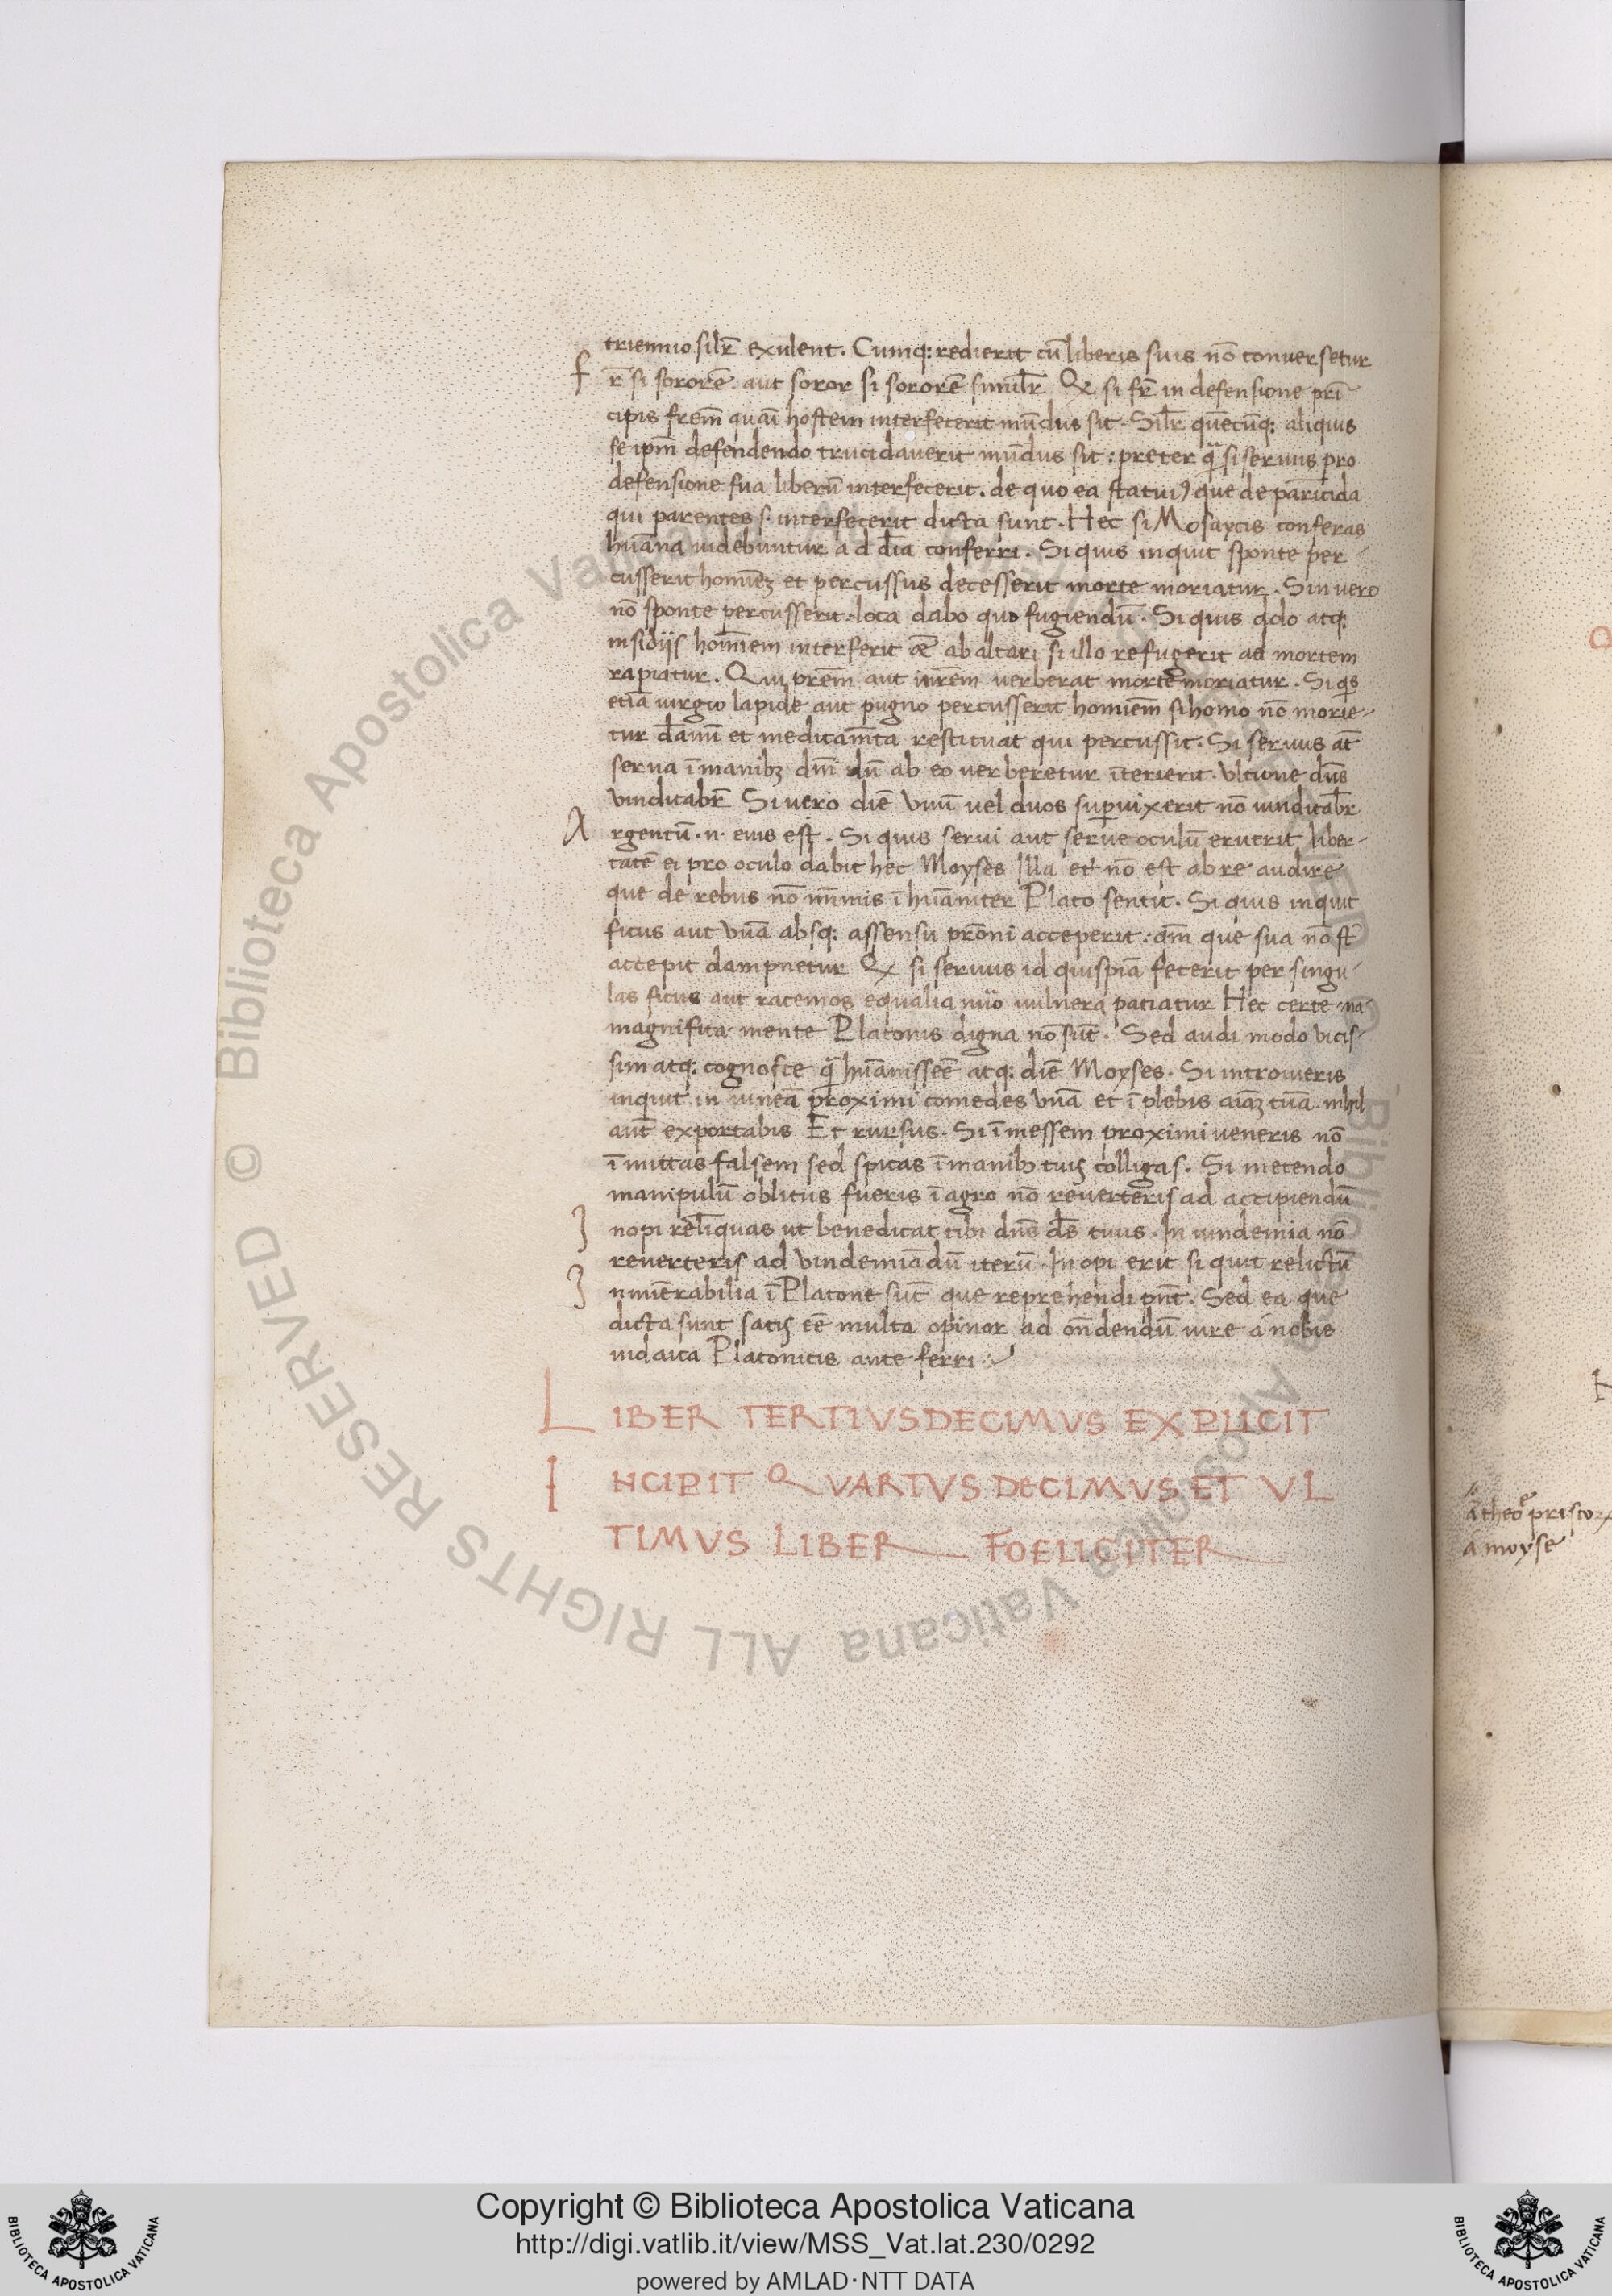 triennio silr̄ exulent. Cumq: redierit cū liberis suis nō conuersetur
f r̄ si sororē. aut soror si sororē similr̄ Qꝫ si fr̄ in defensione prī
cipis frem̄ quaī hostem interfecerit mūdus sit. Silr̄ quēcūq: aliquis
se ipm̄ defendendo trucidauerit mūdus sit: preter q̄ si seruus pro
defensione sua liberū interfecerit. de quo ea statui⁹ que de parricida
qui parentes s. interfecerit dicta sunt. Hec si Mosaycis conferas
huāna uidebuntur ad dīa conferri. Si quis inquit sponte per-
cusserit homīeꝫ et percussus decesserit morte moriatur. Sin uero
nō sponte percusserit. loca dabo quo fugiendū. Si quis dolo atq:
insidijs homīem interferit et ab altari si illo refugerit ad mortem
rapiatur. Qui prēm aut mrēm uerberat morte moriatur. Si qͥs
etiā uirga lapide aut pugno percusserit homīem si homo nō morie-
tur dānū et medicam̄ta restituat qui percussit. Si seruus at̄
serua ī manibꝫ dnī dū ab eo uerberetur īterierit. Vltione dn̄s
vindicabr̄ Si uero diē Vnū uel duos superuixerit nō uindicabr̄
A rgentū. n. eius est. Si quis serui aut serue oculū eruerit liber-
tatē ei pro oculo dabit hec Moyses Illa et nō est ab re audire
que de rebus nō mīmis ī huāniter Plato sentit. Si quis inquit
ficus aut vuā absq: assensu prōni acceperit: qm̄ que sua nō st̄
accepit dampnetur Qꝫ si seruus id quispiā fecerit per singu-
las ficus aut racemos equalia nūo uulnera patiatur Hec certe na-
magnifica mente Platonis digna nō sūt. Sed audi modo vicis-
sim atq: cognosce q̄ huānisseē atq: diē Moyses. Si introiueris
inquit in uineā proximi comedes vuā et ī plebis aīaꝫ tuā. nihil
aut̄ exportabis Et rursus. Si ī messem proximi ueneris nō
ī mittas falsem sed spicas ī manibꝫ tuis colligas. Si metendo
manipulū oblitus fueris ī agro nō reuerteris ad accipiendū
I nopi relīquas ut benedicat tibi dn̄s ds̄ tuus. In uindemia nō
reuerteris ad vindemiādū iterū. Inopi erit si quit relictū
I nnuērabilia ī Platone sūt que reprehendi pn̄t. Sed ea que
dicta sunt satis eē multa opinor ad on̄dendū iure a nobis
iudaica Platonicis ante ferri
LIBER TERTIVSDECIMVS EXPLICIT
INCIPIT QVARTVS DECIMVS ET VL
TIMVS LIBER FOELICITER
a theo priscoꝝ
a moyse
© Biblioteca Apostolica Vaticana ALL RIGHTS RESERVED
BIBLIOTECA APOSTOLICA VATICANA
Copyright © Biblioteca Apostolica Vaticana
http://digi.vatlib.it/view/MSS_Vat.lat.230/0292
powered by AMLAD·NTT DATA
BIBLIOTECA APOSTOLICA VATICANA